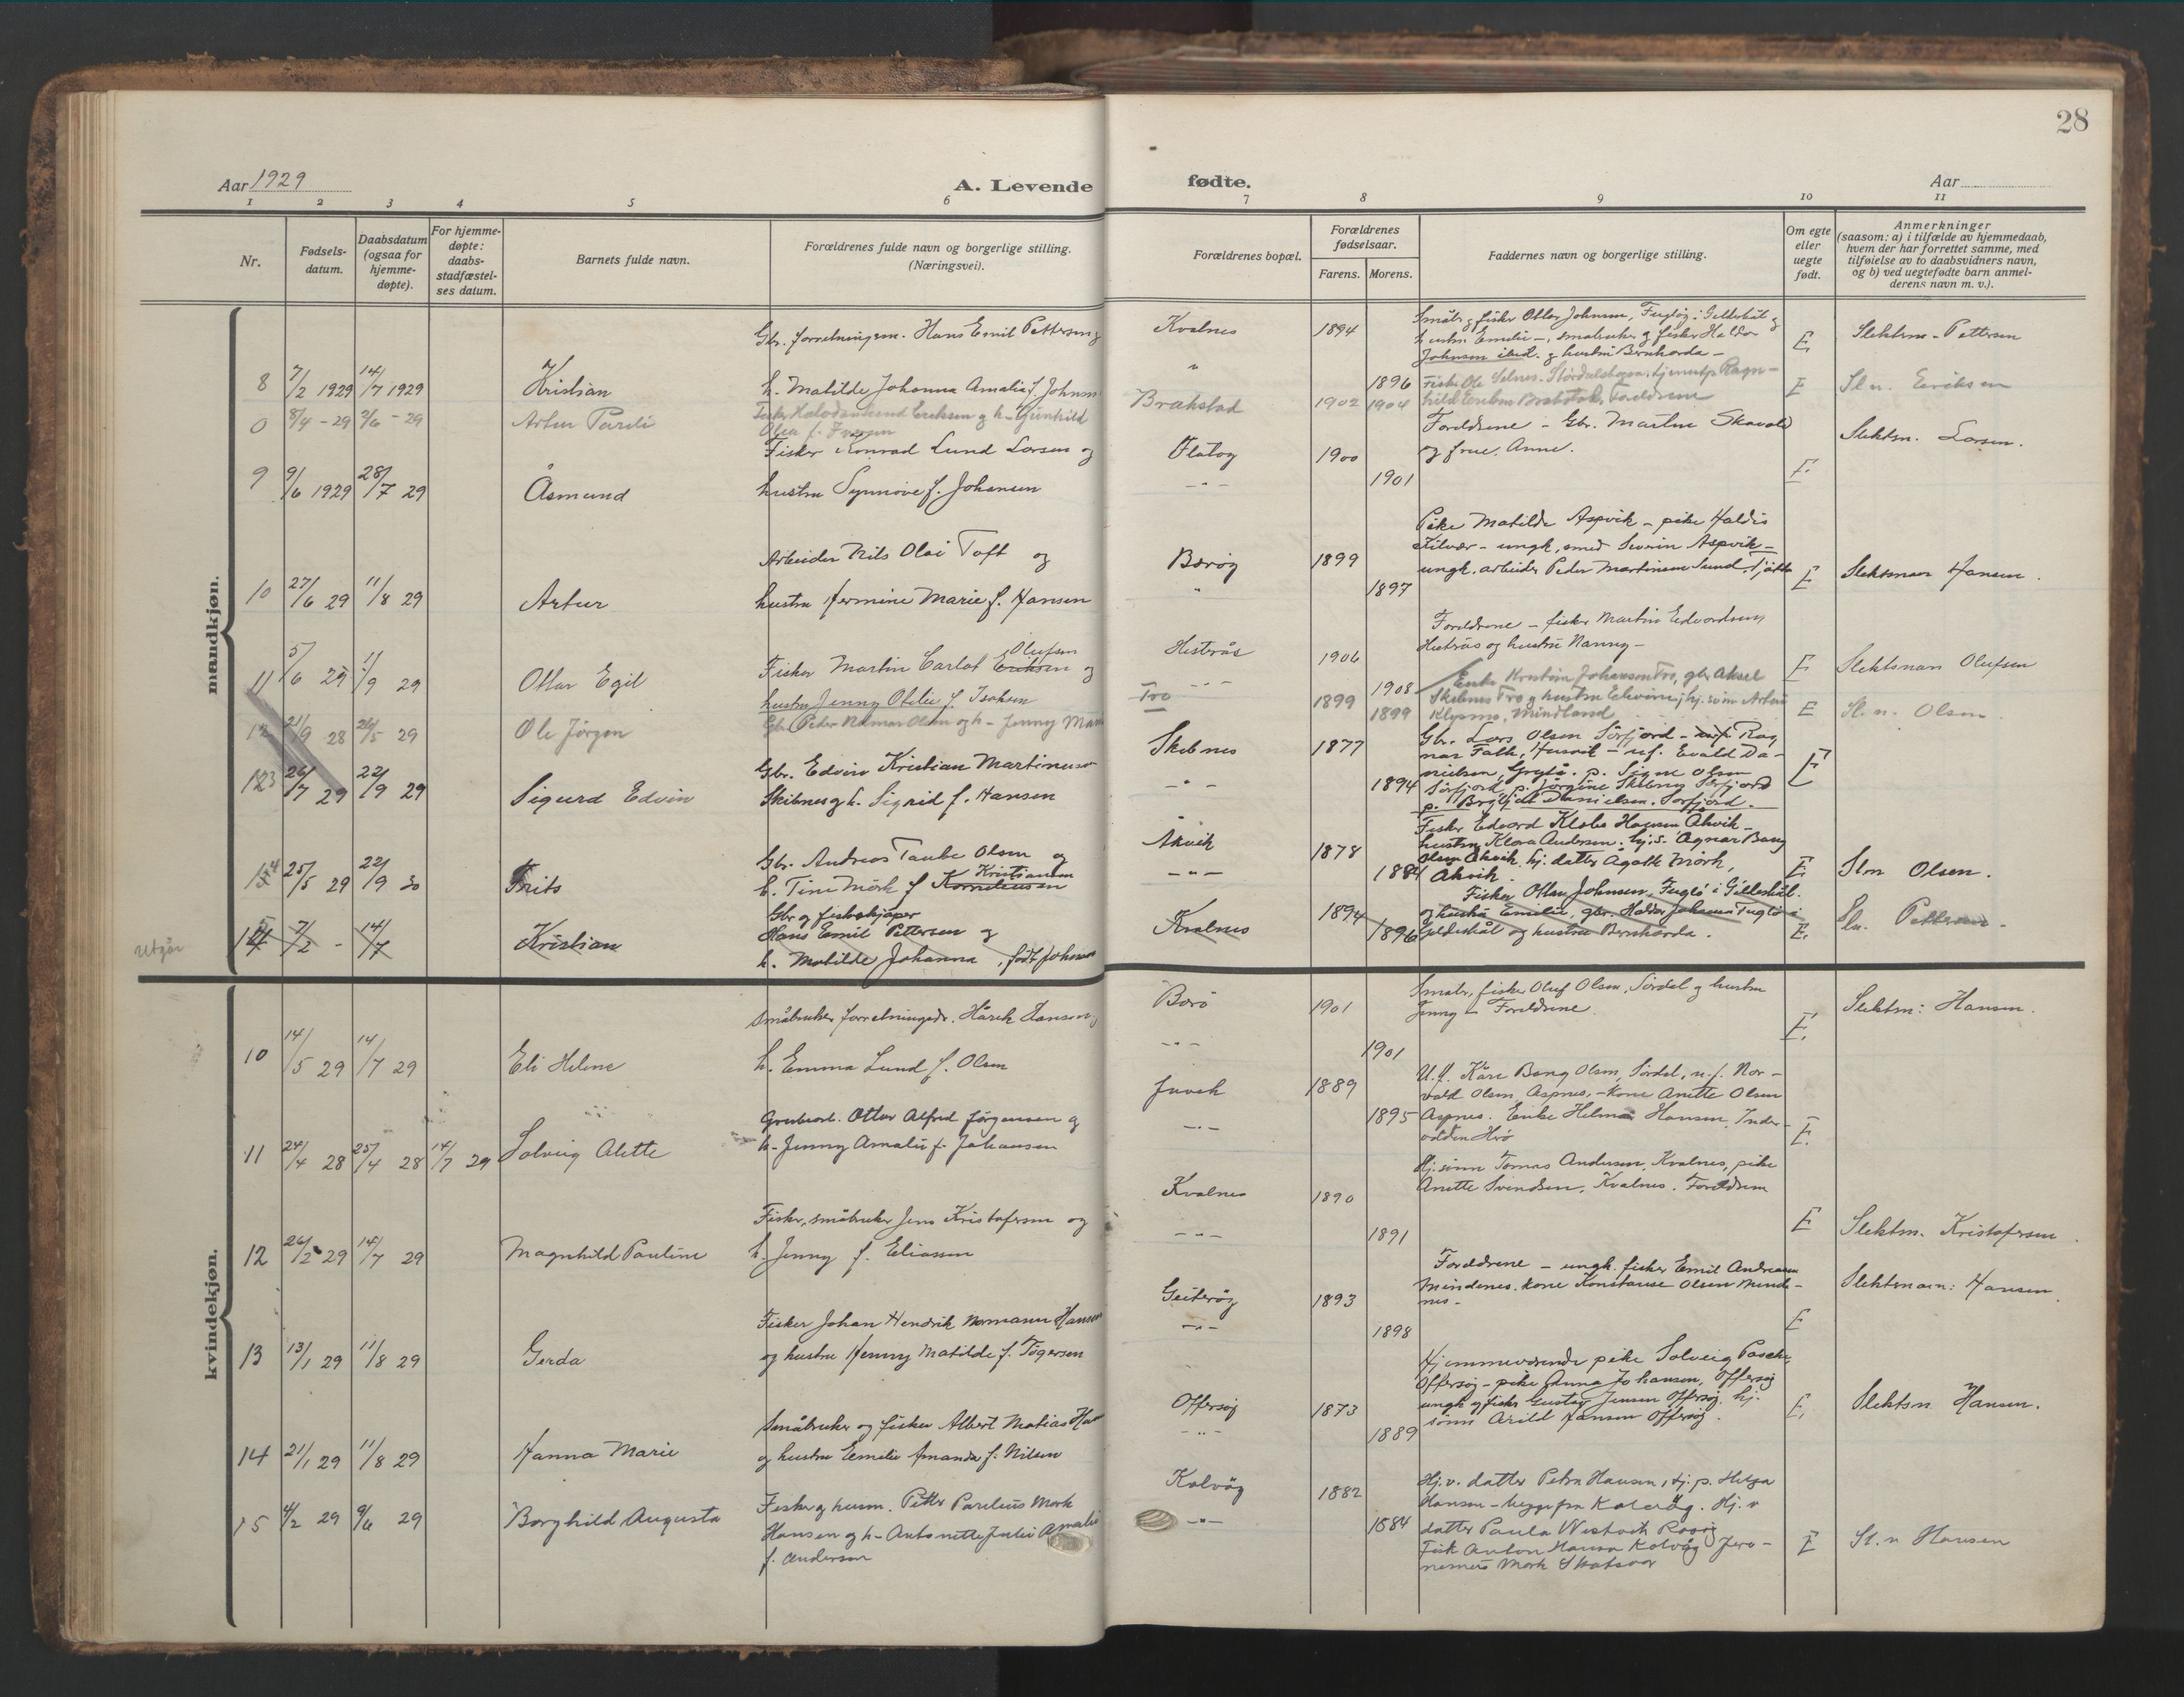 28
Aar 1929
A. Levende
fødte.
Aar
1 2 3 4 5 6 7 8 9 10 11
Nr.
Fødsels-
datum.
Daabsdatum
(ogsaa for
hjemme-
døpte).
For hjemme-
døpte:
daabs-
stadfæstel-
ses datum.
Barnets fulde navn.
Forældrenes fulde navn og borgerlige stilling.
(Næringsvei).
Forældrenes bopæl.
Forældrenes
fødselsaar.
Farens. Morens.
Faddernes navn og borgerlige stilling.
Om egte
eller
uegte
født.
Anmerkninger
(saasom: a) i tilfælde av hjemmedaab,
hvem der har forrettet samme, med
tilføielse av to daabsvidners navn,
og b) ved uegtefødte barn anmel-
derens navn m. v.).
mandkjøn.
8 7/2 1929 14/7 1929 Kristian
Gbr. forretningsm. Hans Emil Pettersen og
h. Matilde Johanna Amalie f. Johnsen
Kvalnes 1894
" 1896
Småbr. og fisker Ottar Johnsen, Fugløy i Gildeskål og
hustru Emilie –, småbruker og fisker Haldor
Johnsen ibid. og hustru Bernharda –
E Slektsn. Pettersen
0 8/4 - 29 2/6 - 29 Artur Pareli
Olea f. Iversen
Brakstad 1902 1904
Fisker Ole Selnes, Foreldrene
E Sl. n. Eriksen
9 9/6 1929 28/7 29 Åsmund
Fisker Konrad Lund Larsen og
hustru Synnøve f. Johansen
Flatøy 1900
-"- 1901
Foreldrene – Gbr. Martin Skavold
og frue, Anne.
E. Slektsn. Larsen.
10 27/6 29 11/8 29 Artur
Arbeider Nils Olai Toft og
hustru Hermine Marie f. Hansen
Barøy 1899
" 1897
Pike Matilde Aspvik – pike Haldis
Kilvær – ungk. smed Severin Aspvik –
ungk. arbeider Peder Martinsen Sund, Tjøtta
E Slektsnavn Hansen.
11 5/6 29 1/9 29 Ottar Egil
Olufsen
Fisker Martin Carlot Eriksen og
hustru Jenny Otilie f. Isaksen
Hestøås 1906
-"- 1908
Foreldrene – fisker Martin Edvardsen,
og hustru Nanny –
E Slektsnavn Olufsen
12 21/9 28 26/5 29 Ole Jørgen
Gbr. Peder Olsen og h– Jenny Marie
Tro 1899
1899
Enke Kristine Johansen Tro, gbr. Aksel
Skibnes Tro og hustru Edvine, hj. sönn Artur
Mindland
E Sl. n. Olsen.
123 26/7 29 22/9 29 Sigurd Edvin
Gbr. Edvin Kristian Martinusen
Skibnes og h. Sigrid f. Hansen
Skibnes 1877
-"- 1894
Gbr. Lars Olsen Sörfjord – u.f. Rag
nar Falk, Husvik – u.f. Evald Da-
nielsen, p. Signe Olsen
Sörfjord p. Jørgine Skibnes Sörfjord
p. Danielsen. Sorfjord.
E
14 25/5 29 22/9 30 Frits
Gbr. Andreas Taube Olsen og
Kristiansen
h. Tine Mörk f Korneliussen
Åkvik 1878
-"- 1884
Fisker Edvard Hansen Åkvik –
hustru Klara Andersen. hj. s. Agnar Bang
Olsen Åkvik hj. datter Agate Mörk,
Åkvik.
E. Sln Olsen.
Utgår
14 7/2 - 14/7 Kristian
Gbr og fiskekjøper
Hans Emil Pettersen og
h. Matilde Johanna, født Johnsen
Kvalnes 1894
1896
Fisker Ottar Johnsen, Fuglö i Gildeskål.
og hustru Emilie, gbr. Haldor Johnsen Fuglö i
Gildeskål og hustru Bernharda.
E. Sln. Pettersen –
kvindekjøn.
10 14/5 29 14/7 29 Eli Helene
Småbruker forretningsdr. Hårek Hansen og
h. Emma Lund f. Olsen
Barö 1901
-"- 1901
Småbr., fisker Oluf Olsen, Sördal og hustru
Jenny – Foreldrene.
E. Slektsn: Hansen.
11 24/4 28 25/4 28 14/7 29 Solveig Alette
Grubearb. Ottar Alfred Jørgensen og
h– Jenny Amalie f. Johansen
Juvik 1889
-"- 1895
U.f. Kåre Bang Olsen, Sördal, u.f. Nor-
vald Olsen, Aspnes, – kone Anette Olsen
Aspnes. Enke Helma Hansen, Inder-
E.
12 26/2 29 14/7 29 Magnhild Pauline
Fisker, småbruker Jens Kristofersen og
h. Jenny f. Eliassen
Kvalnes 1890
-"- 1891
Hj. sönn Tomas Andersen, Kvalnes, pike
Anette Svendsen, Kvalnes. Foreldrene
E Slektsn. Kristofersen.
13 13/1 29 11/8 29 Gerda
Fisker Johan Hendrik Normann Hansen
og hustru Henny Matilde f. Tögersen
Geiterøy 1893
-"- 1898
Foreldrene – ungk. fisker Emil Andreasen
Mindenes. kone Konstanse Olsen Minde-
nes –
E Slektsnavn: Hansen.
14 21/1 29 11/8 29 Hanna Marie
Småbruker og fisker Albert Matias Hansen
og hustru Emilie Amanda f. Nilsen
Offersøy 1873
-"- 1889
Hjemmeværende pike Solveig Pasche,
Offersøy – pike Anna Johansen, Offersøy
ungk og fisker Gustav Jensen Offersøy. hj.
sönn Arild Hansen Offersøy.
E. Slektsn Hansen.
15 4/2 29 9/6 29 Borghild Augusta
Fisker og husm. Petter Parelius Mork
Hansen og h– Antonette Julie Amalie
f. Andersen
Kalvåg 1882
-"- 1884
Hj. v. datter Petra Hansen, hj. p. Helga
Hansen – begge fra Kalvåg. Hj. v
datter Paula Westvik Rosøy
Fisk Anton Hansen Kalvåg Jero-
nimus Mork
E Sl. n Hansen